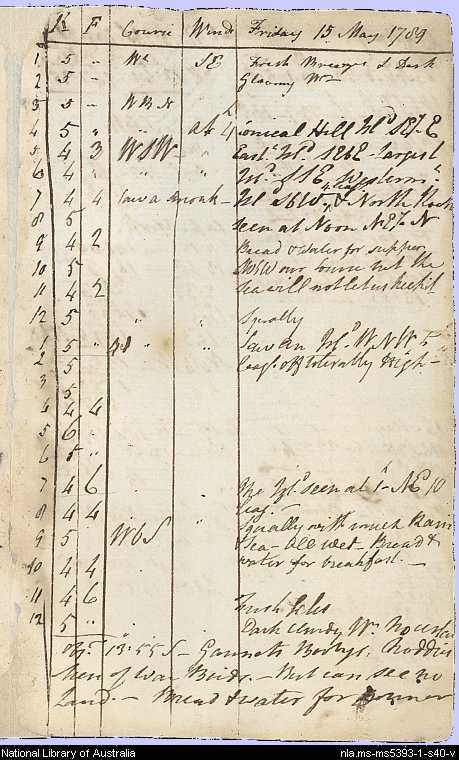 K F Course Winds Friday 15 May 1789
1 5 " Wt SE Fresh Breezes & Dark
2 5 - Gloomy Wr
3 5 - WBN
4 5 " " at 4h Conical Hill Isld S E
5 4 3 WSW East Isld largest
6 4 " " " Isld SE Western
7 4 4 Saw a smoak - Isld & North Rock
8 5 seen at Noon N
9 4 2 Bread & Water for supper
10 5 WSW our course but the
11 4 2 sea will not let us keep it
12 5 " " Squally
1 5 " " Saw an Isld WNW 5
2 5 leags. off tolerably High -
3 5
4 4 4
5 6 "
6 5 "
7 4 6 The Isld seen at 1 - NE 10
8 4 4 leag. -
9 5 WBS " Squally with much Rain
& Sea - all wet - Bread &
10 4 4 water for breakfast. -
11 4 6 Fresh Gales
12 5 " Dark cloudy Wr No
13°:55 S - Gannets Boobys, Noddies
Men of War Birds. - But can see no
Land. - Bread & water for dinner
National Library of Australia nla.ms-ms5393-1-s40-v